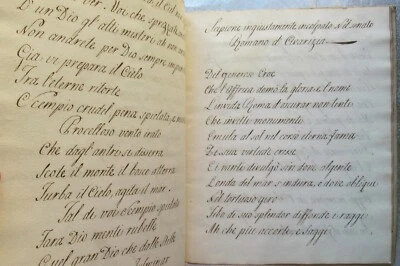 D'un Dio gl'alti misteri
Non andrete per Dio sempre
Già vi prepara il Cielo
Fra l'eterne ritorte
E c'empio crudel pena, spietata, e
Procelloso vento irato
Che dagl'antri si disserra
Scote il monte il bosco atterra
Turba il Cielo, agita il mar
Tal di voi c'empio
Farà Dio mente ribelle
Quel gran Dio che dalle Stelle
Scipione ingiustamente incolpato nel Senato
Romano d'Avarizia
Del generoso Eroe
Che l'Affrica domò la gloria e'l nome
L'invida Roma d'oscurar non tentò
Che invitto monumento
Emula al sol nel corso eterna fama
Di sua virtude eresse
E'l vanto divulgò sin dove algente
L'onda del mar s'indura, e dove obliqua
Nel tortuoso giro
Febo di suo splendor diffonde i raggi
Mi che più accorte e saggi